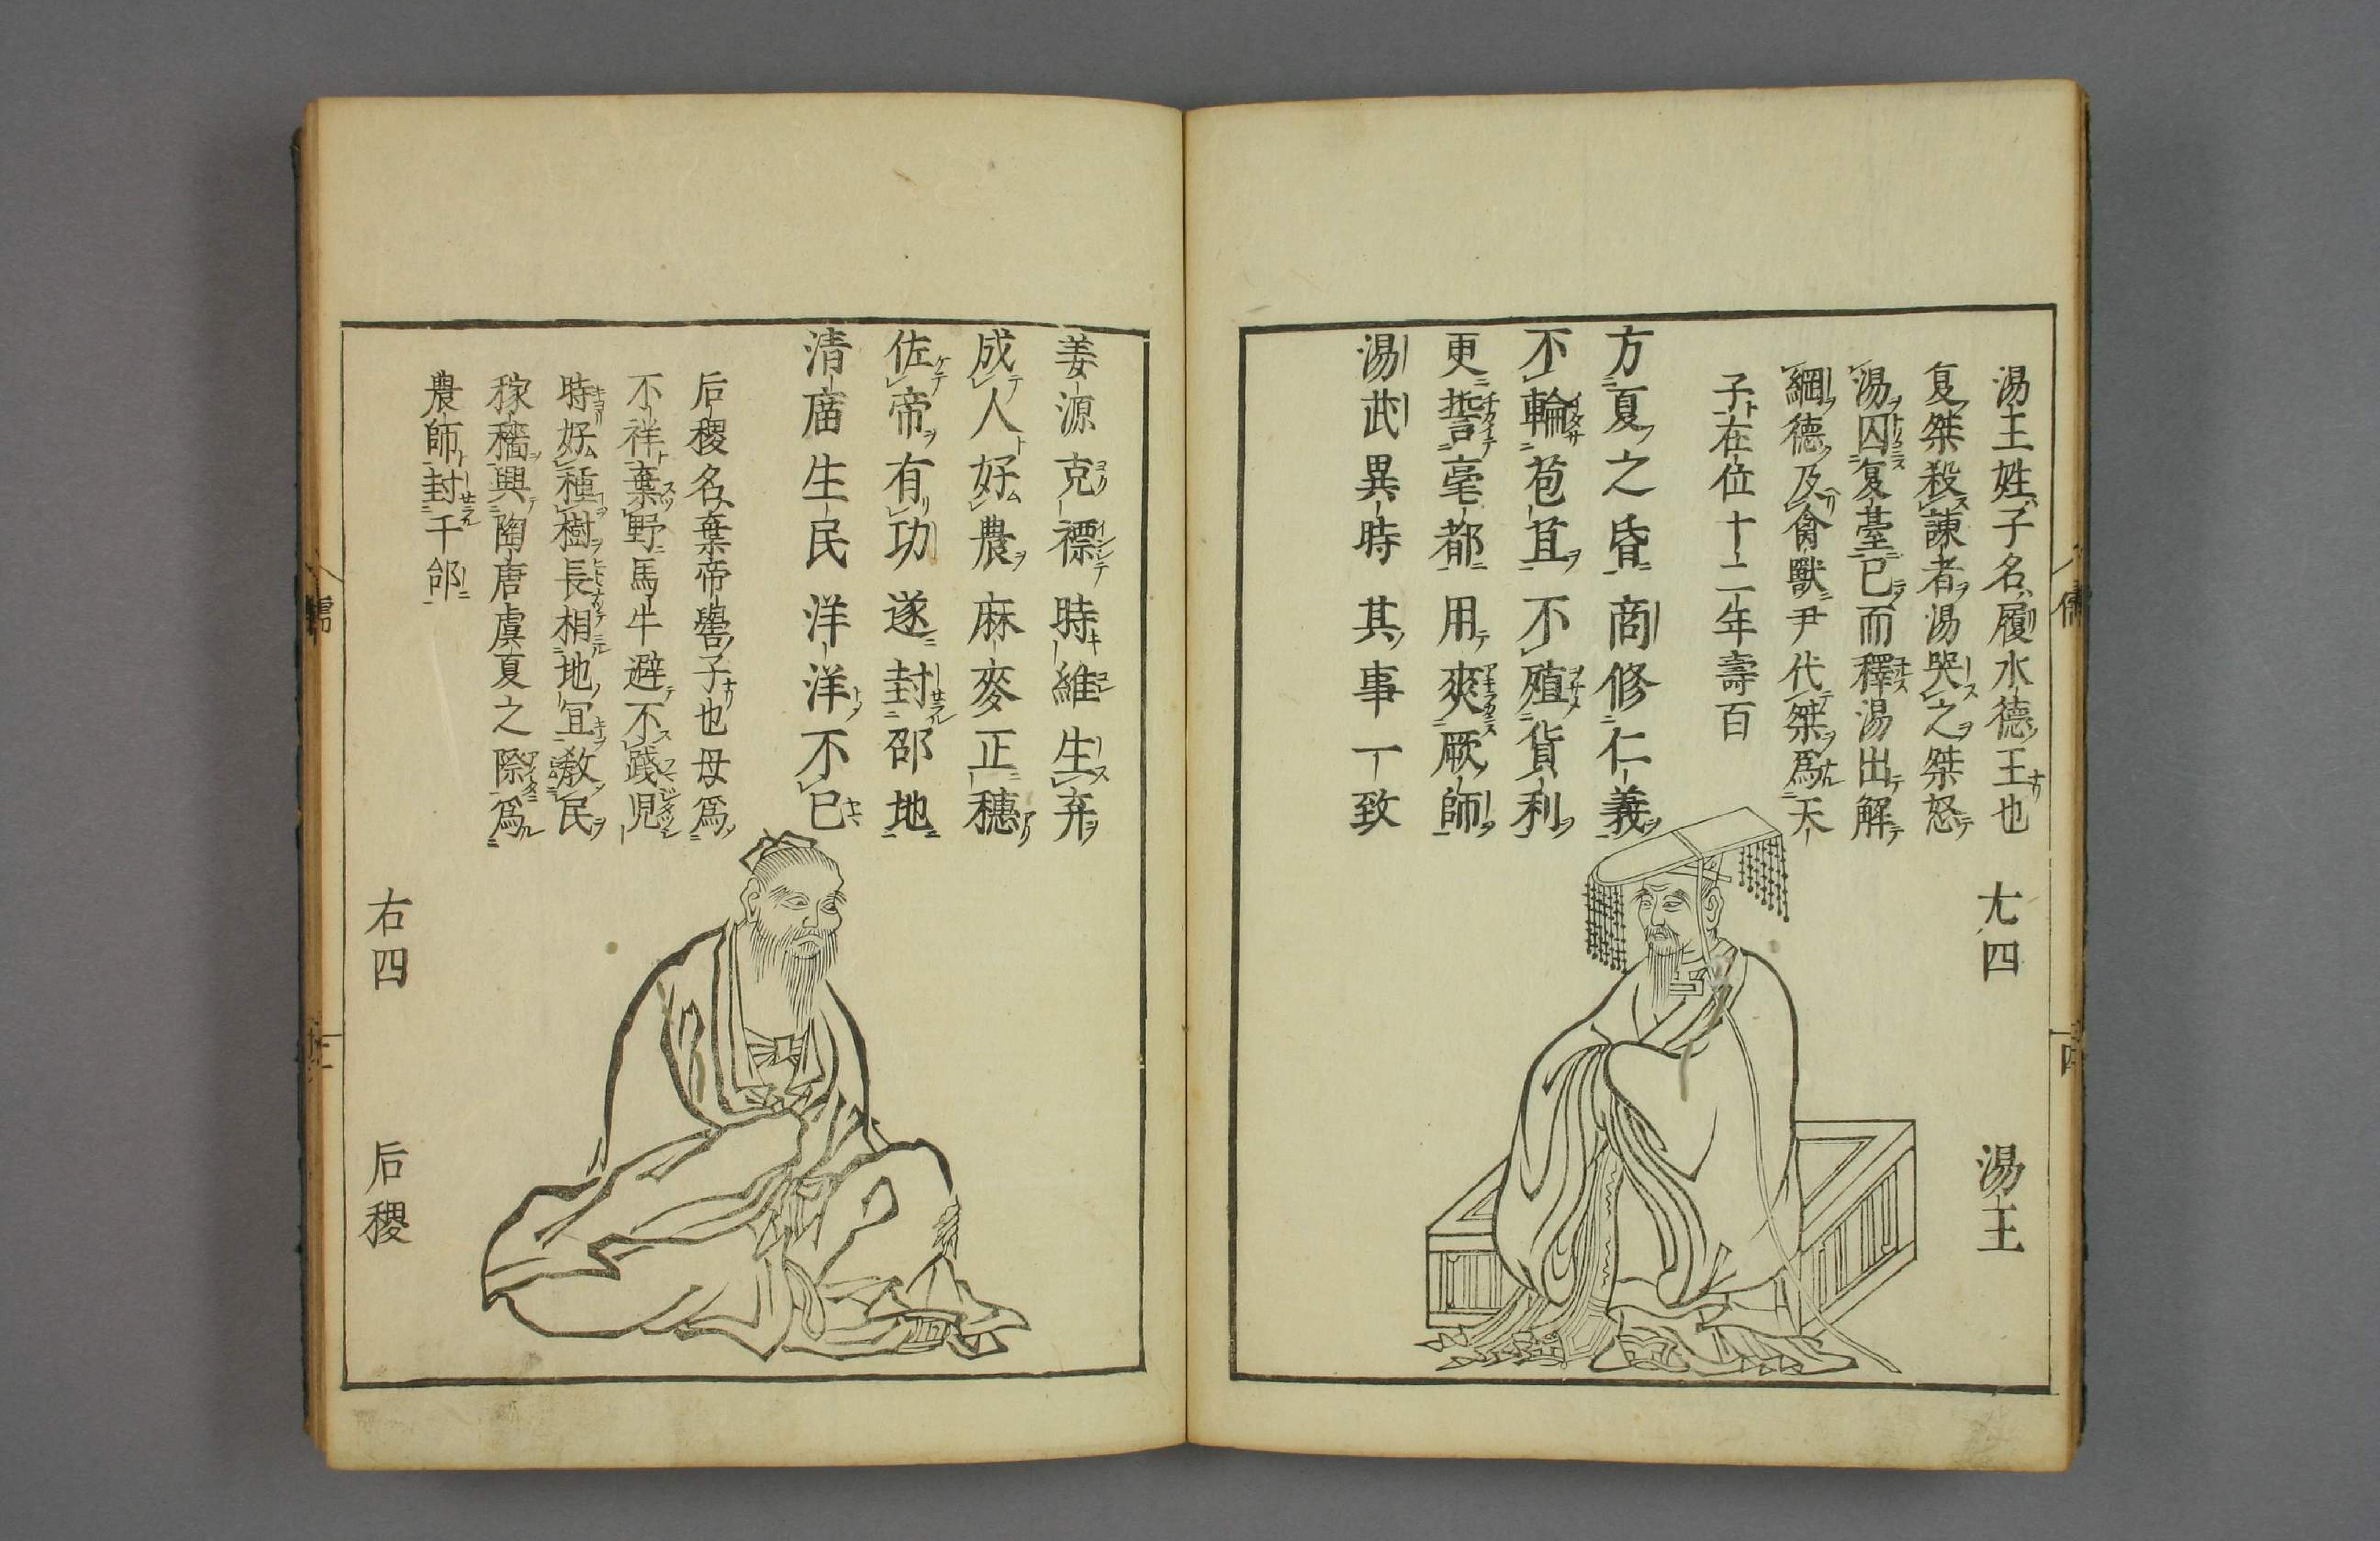 湯王姓子名履水德王也
夏桀殺諫者湯哭之桀怒
湯囚夏臺已而釋湯出解
綱德及禽獸尹代桀爲天
子在位十二年壽百
尢四
湯王
方夏之昏商修仁義
不輪苞苴不殖貨利
更誓毫都用爽厥師
湯武異時其事一致
姜源克禋時維生弃
成人好農麻麥正穗
佐帝有功遂封邵地
清庿生民洋洋不已
后稷名棄帝嚳子也母爲
不祥棄野馬牛避不踐児
時好種樹長相地冝敎民
稼穡興陶唐虞夏之際爲
農師封于邰
右四
后稷